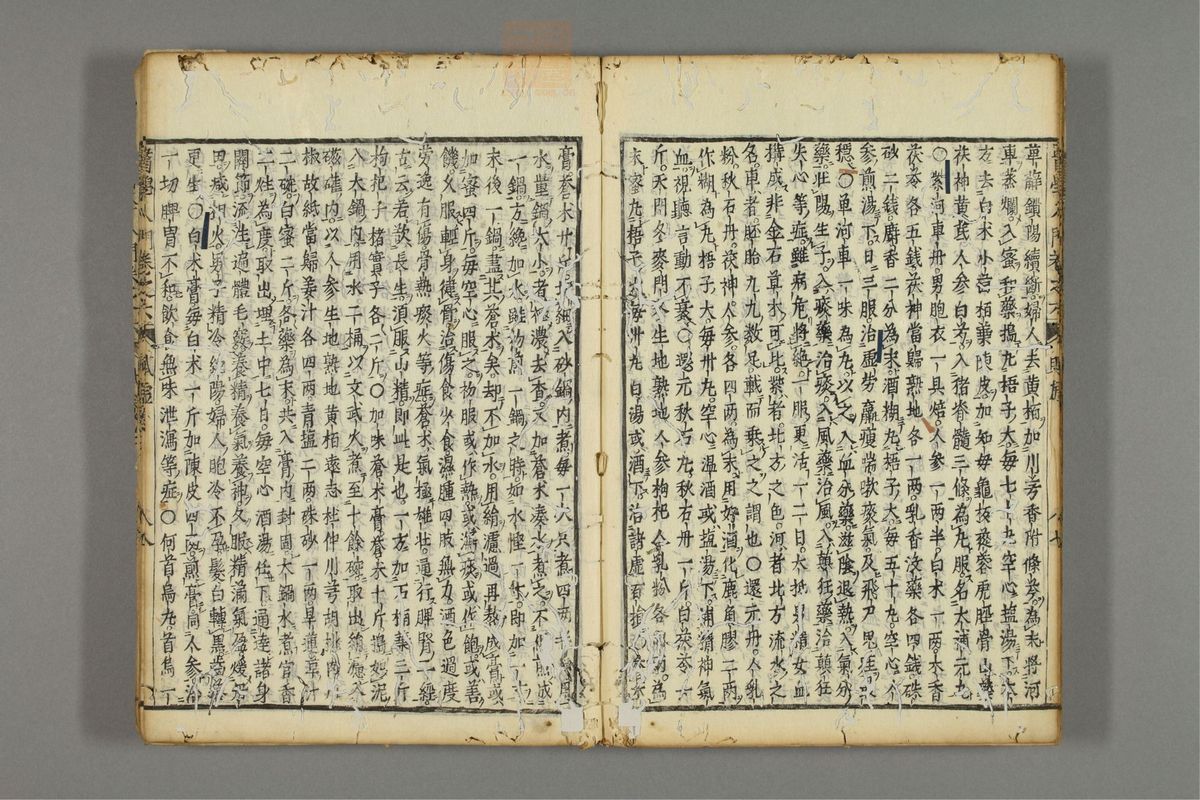 萆薢鎖陽續斷婦人去黃栢加川芎香附條芩為末將河
車蒸爛入蜜和藥搗丸梧子大每七十丸空心塩湯下本
方去白朮小茴栢葉陳皮加知母龜板虎脛骨山藥
茯神黃芪人參白芍入猪脊髓三條為丸服名大造丸
○紫河車丹男胞衣一具焙人參一兩半白朮一兩木香
茯苓各五錢茯神當歸熟地各一兩乳香沒藥各四錢硃
砂二錢麝香二分為末酒糊丸梧子大每五十丸空心人
參煎湯下日三服治虛勞羸瘦喘嗽痰氣及飛尸鬼疰
○單河車一味為丸以之入血分藥滋陰退熱入氣分
藥壯陽生子入痰藥治痰入風藥治風入藥治癲狂
失心等症雖病危將絕一二服更活一二日大抵男精女血
搆成非金石草木可比紫者北方之色河者北方流水之
名車者胚胎九九數足載而乘之之謂也○還元丹人乳
粉秋石丹茯神人參各四兩為末用好酒化鹿角膠二兩
作糊為丸梧子大每卅丸空心温酒或塩湯下補精神氣
血視聽言動不衰○還元秋石丸秋石丹一斤白茯苓一
斤天門冬麥門冬生地熟地人參枸杞人乳粉各四兩為
末蜜丸梧子大每卅丸白湯或酒下治諸虛百損
膏蒼朮廿斤入砂鍋內煮每一
水量鍋大小者極濃去查又加蒼朮湊水煮之
一鍋方純加水無物為一鍋之時如水慳一件即加一
末後一鍋盡其蒼朮矣却不加水用絹濾過再熬成膏或
加蜜四斤每空心服之初服或作熱或瀉痰或作飽或善
饑久服輕身健骨治傷食少食濕腫四肢無力酒色過度
勞逸有傷骨熱痰火等症蒼朮氣極雄壯通行脾腎二經
古云若欲長生須服山精即此是也一方加石楠葉三斤
枸杞子楮實子各二斤○加味蒼朮膏蒼朮十斤搗如泥
入大鍋內用水二桶以文武火煮至十餘碗取出絹濾入
磁礶內以人參生地熟地黃栢遠志杜仲川芎胡桃肉川
椒故紙當歸姜汁各四兩青塩二兩硃砂一兩旱蓮草汁
二碗白蜜二斤各藥為末共入膏內封固大鍋水煮官香
二炷為度取出埋土中七日每空心酒湯任下通達諸身
關節流生遍體毛竅養精養氣養神久服精滿氣盈煖
田減相火男子精冷絕陽婦人胞冷不孕髮白轉黑齒落
更生○白朮膏每白朮一斤加陳皮四兩煎膏同人參治
一切脾胃不和飲食無味泄瀉等症○何首烏丸首烏一